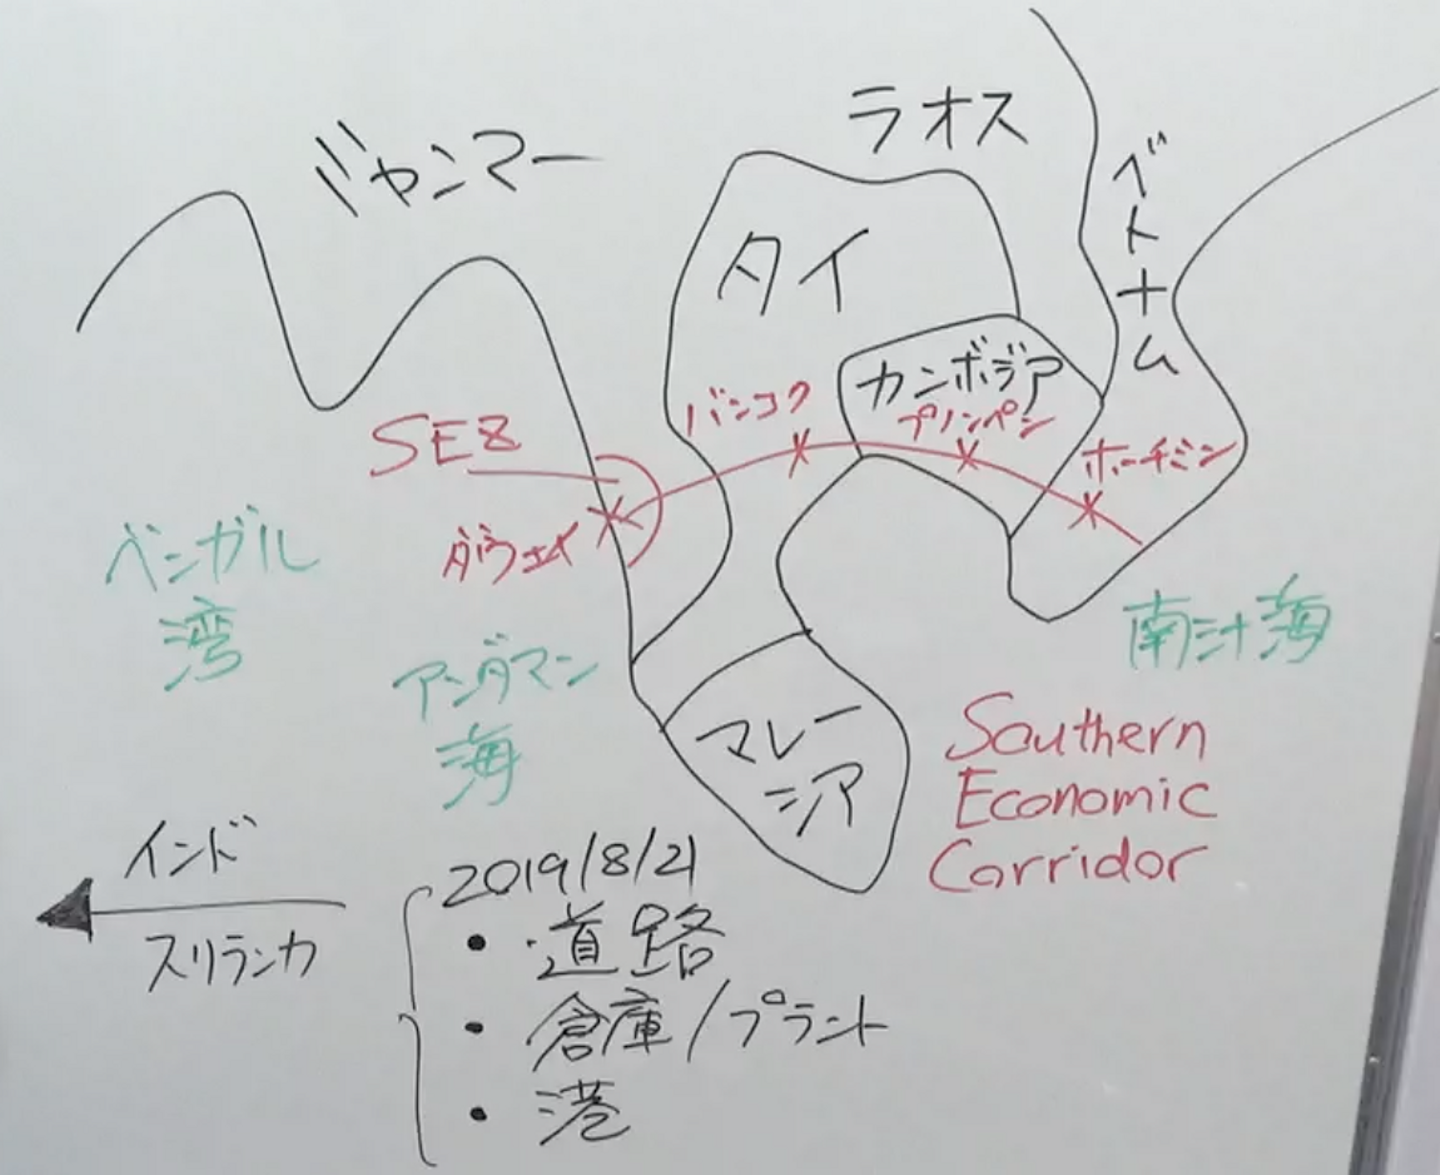 ラオス
ミャンマー
ベトナム
タイ
カンボジア
バンコク
プノンペン
ホーチミン
SEZ
ダウェイ
ベンガル
湾
アンダマン
海
南シナ海
マレー
シア
Southern
Economic
Corridor
インド
スリランカ
2019/8/21
・道路
・倉庫/プラント
・港